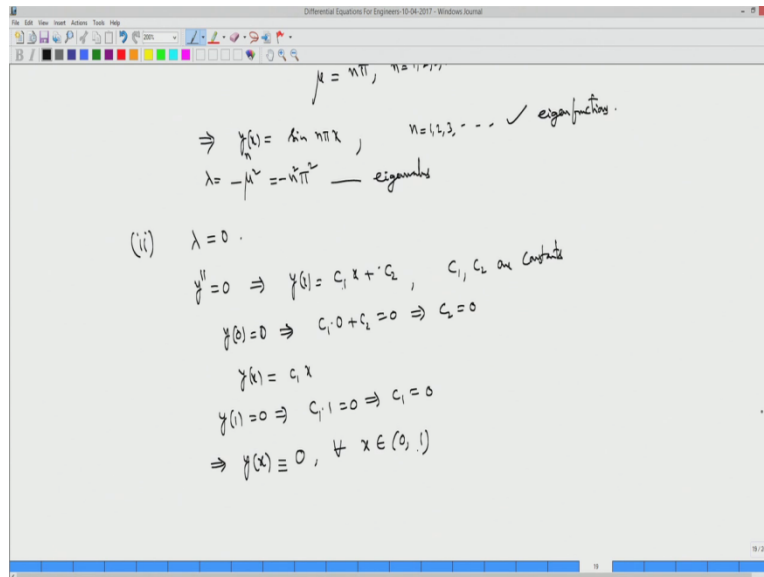 Differential Equations For Engineers-10-04-2017 - Windows Journal
File Edit View Insert Actions Tools Help
200%
B I
μ = nπ, n=1,2,3,
⇒ yₙ(x) = sin nπx, n=1,2,3,---- ✓ eigenfunctions.
λ = -μ² = -n²π² — eigenvalues
(ii) λ = 0.
y'' = 0 ⇒ y(x) = C₁ x + C₂, C₁, C₂ are constants
y(0)=0 ⇒ C₁·0 + C₂ = 0 ⇒ C₂ = 0
y(x) = C₁ x
y(1)=0 ⇒ C₁·1 = 0 ⇒ C₁ = 0
⇒ y(x) ≡ 0, ∀ x ∈ (0, 1)
19